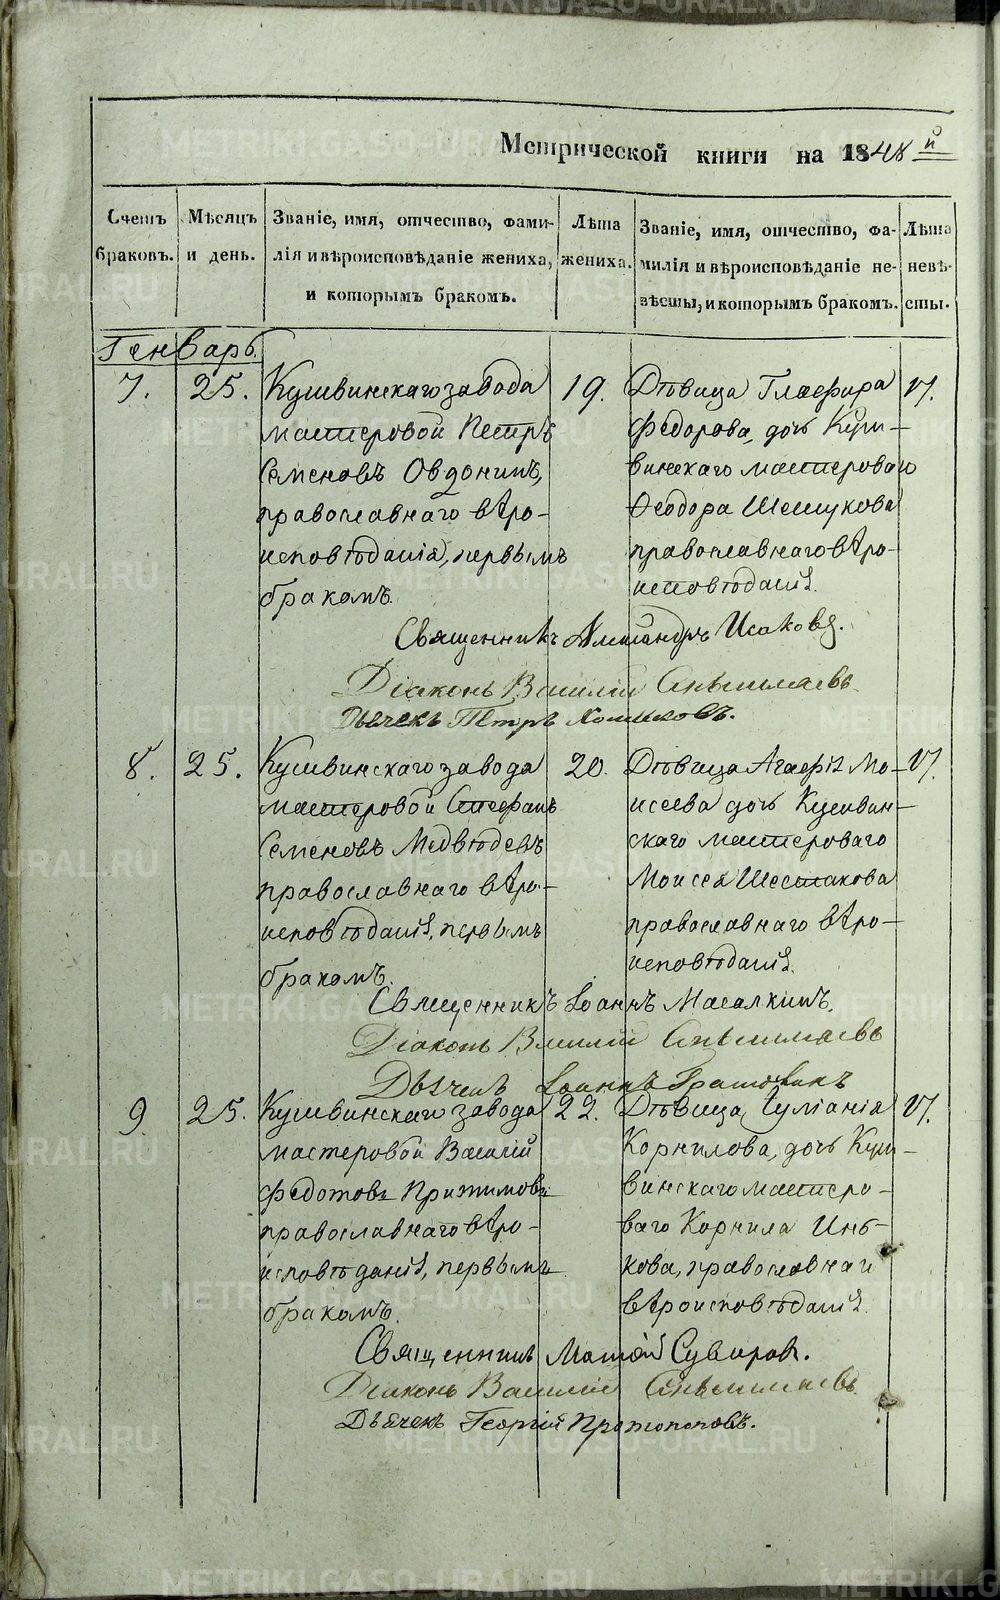 Метрической книги на 1848й
Счетъ браковъ.
Мѣсяцъ и день.
Званіе, имя, отчество, фами-
лія и вѣроисповѣданіе жениха,
и которымъ бракомъ.
Лѣта жениха.
Званіе, имя, отчество, фа-
милія и вѣроисповѣданіе не-
вѣсты, и которымъ бракомъ.
Лѣта невѣ-
сты.
Генварь.
7. 25. Кушвинскаго завода
мастеровой Петръ
Семеновъ Овдонинъ,
православнаго вѣро-
исповѣданія, первымъ
бракомъ.
19.
Дѣвица Глафира
Федорова, дочь Куш-
винскаго мастероваго
Ѳеодора Шешукова
православнаго вѣро-
исповѣданія.
17.
Священникъ Александръ Исаковъ.
Діаконъ Василій
Дьячекъ Петръ Хомяковъ.
8. 25. Кушвинскаго завода
мастеровой Стефанъ
Семеновъ Медвѣдевъ
православнаго вѣро-
исповѣданія, первымъ
бракомъ.
20.
Дѣвица Агафія Мо-
исеева дочь Кушвин-
скаго мастероваго
Моисея Шестакова
православнаго вѣро-
исповѣданія.
17.
Священникъ Іоаннъ Масалкинъ.
Діаконъ Василій
Дьячекъ Іоаннъ
9. 25. Кушвинскаго завода
мастеровой Василій
Федотовъ Прижимовъ
православнаго вѣро-
исповѣданія, первымъ
бракомъ.
22.
Дѣвица, Іуліанія
Корнилова, дочь Куш-
винскаго мастеро-
ваго Корнила Инь-
кова, православнаго
вѣроисповѣданія.
17.
Священникъ Матѳій Сувировъ.
Діаконъ Василій
Дьячекъ Георгій Протопоповъ.
METRIKI.GASO-URAL.RU